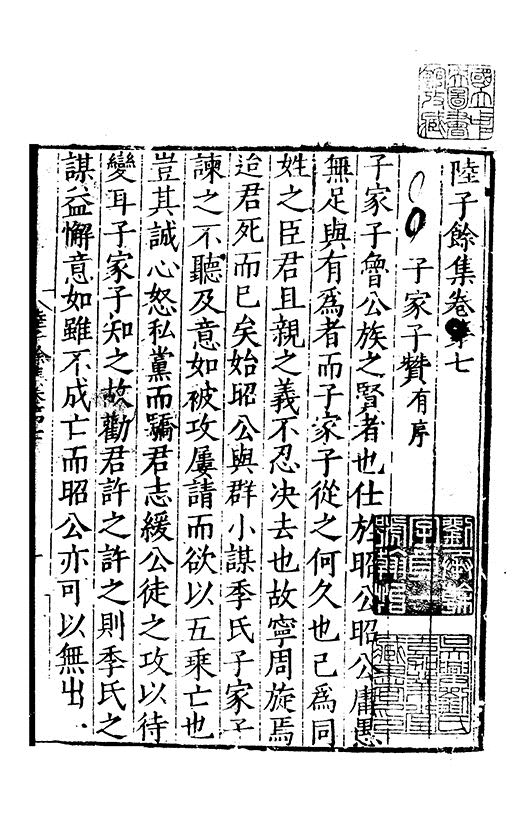 陸子餘集卷第七
子家子贊有序
子家子魯公族之賢者也仕於昭公昭公庸愚
無足與有爲者而子家子從之何久也己爲同
姓之臣君且親之義不忍决去也故寧周旋焉
迨君死而已矣始昭公與群小謀季氏子家子
諫之不聽及意如被攻屢請而欲以五乘亡也
豈其誠心怒私黨而驕君志緩公徒之攻以待
變耳子家子知之故勸君許之許之則季氏之
謀益懈意如雖不成亡而昭公亦可以無出
國立中
央圖書
館收藏
吳興劉氏
嘉業堂
藏書印